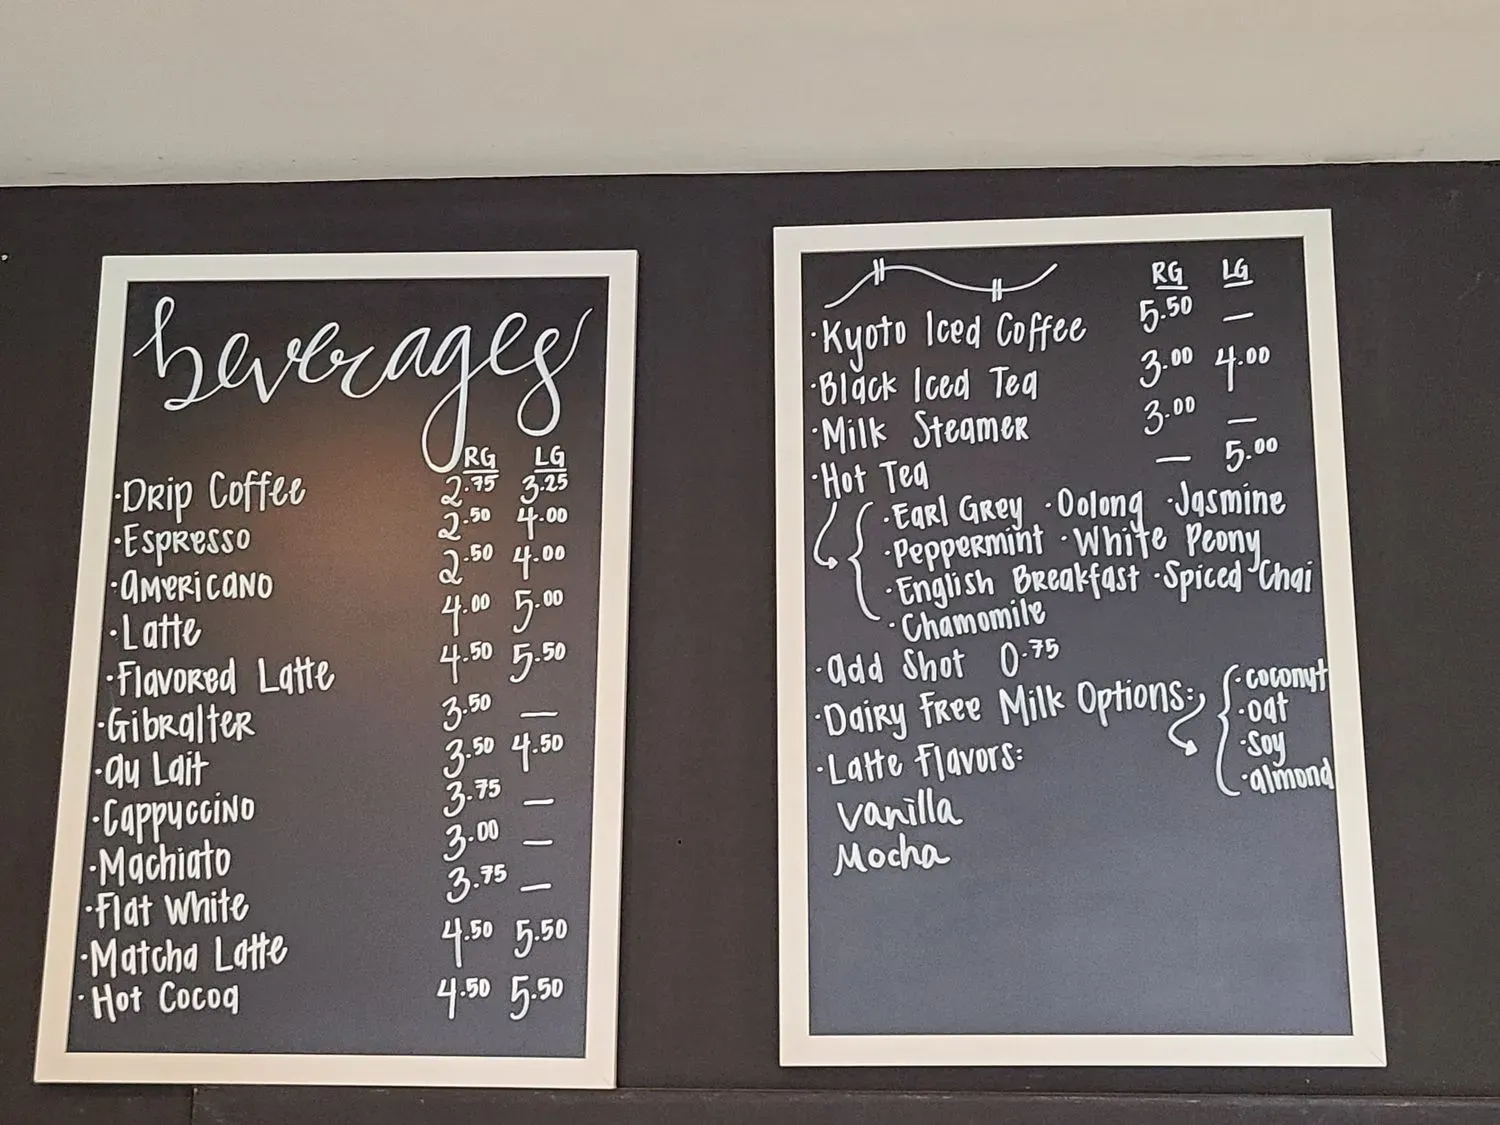 beverages
RG LG
·Drip Coffee 2.75 3.25
·Espresso 2.50 4.00
·Americano 2.50 4.00
·Latte 4.00 5.00
·Flavored Latte 4.50 5.50
·Gibralter 3.50 —
·au Lait 3.50 4.50
·Cappuccino 3.75 —
·Machiato 3.00 —
·Flat White 3.75 —
·Matcha Latte 4.50 5.50
·Hot Cocoa 4.50 5.50
RG LG
·Kyoto Iced Coffee 5.50 —
·Black Iced Tea 3.00 4.00
·Milk Steamer 3.00 —
·Hot Tea — 5.00
·Earl Grey ·Oolong ·Jasmine
·Peppermint ·White Peony
·English Breakfast ·Spiced Chai
·Chamomile
·add Shot 0.75
·Dairy Free Milk Options:
·coconut
·oat
·Soy
·almond
·Latte Flavors:
Vanilla
Mocha